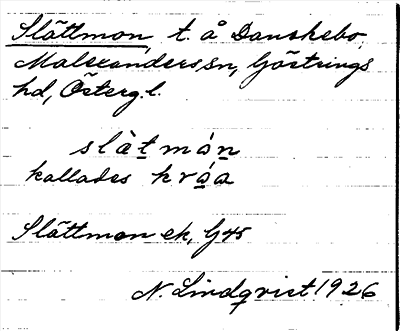 Slättmon, t. å Danskebo,
Malexanders sn, Göstrings
hd, Österg. l.
slàt món
kallades kráa
Slättmon ek, G4s
N. Lindqvist 1926